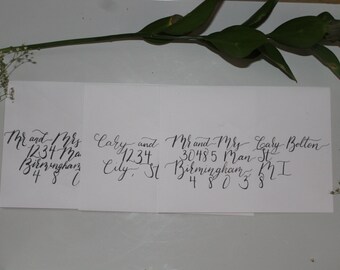 Mr and Mrs
1234 Ma
Birmingham
4 8 0
Cary and
1234
City, St
Mr and Mrs Gary Bolton
30485 Man St
Birmingham, MI
4 8 0 3 8